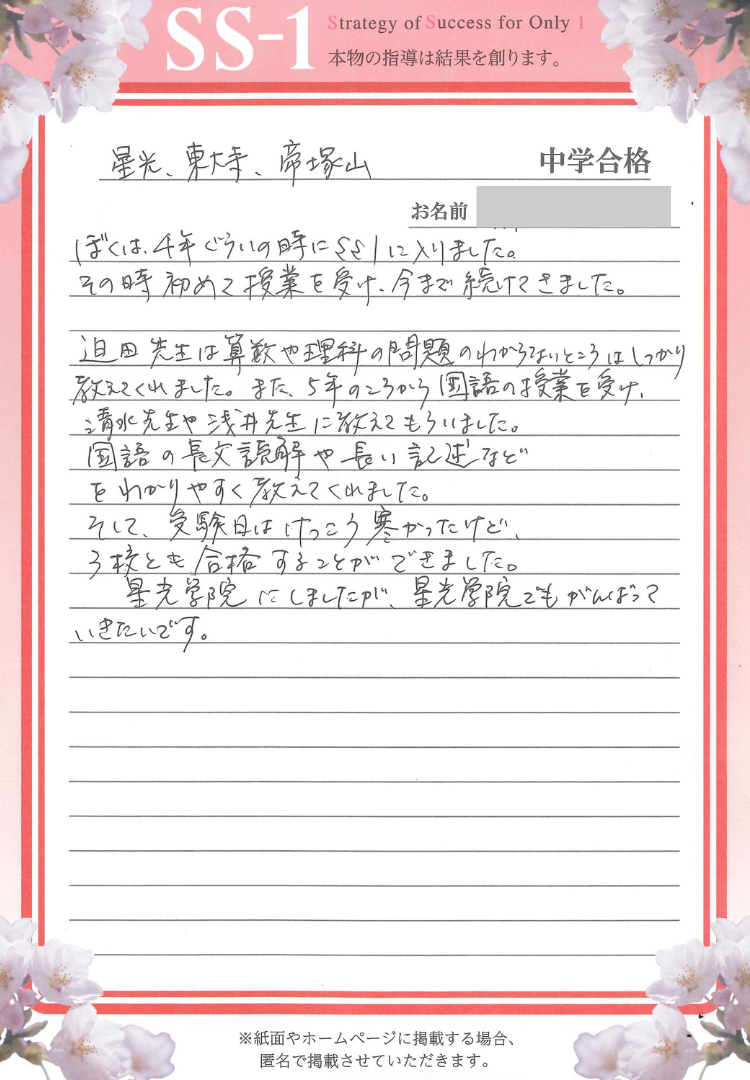 SS-1
Strategy of Success for Only 1
本物の指導は結果を創ります。
星光、東大寺、帝塚山 中学合格
お名前
ぼくは、4年ぐらいの時にSS1に入りました。
その時初めて授業を受け、今まで続けてきました。
迫田先生は算数や理科の問題のわからないところはしっかり
教えてくれました。また、5年のころから国語の授業を受け、
清水先生や浅井先生に教えてもらいました。
国語の長文読解や長い記述など
をわかりやすく教えてくれました。
そして、受験日はけっこう寒かったけど、
3校とも合格することができました。
星光学院にしましたが、星光学院でもがんばって
いきたいです。
※紙面やホームページに掲載する場合、
匿名で掲載させていただきます。